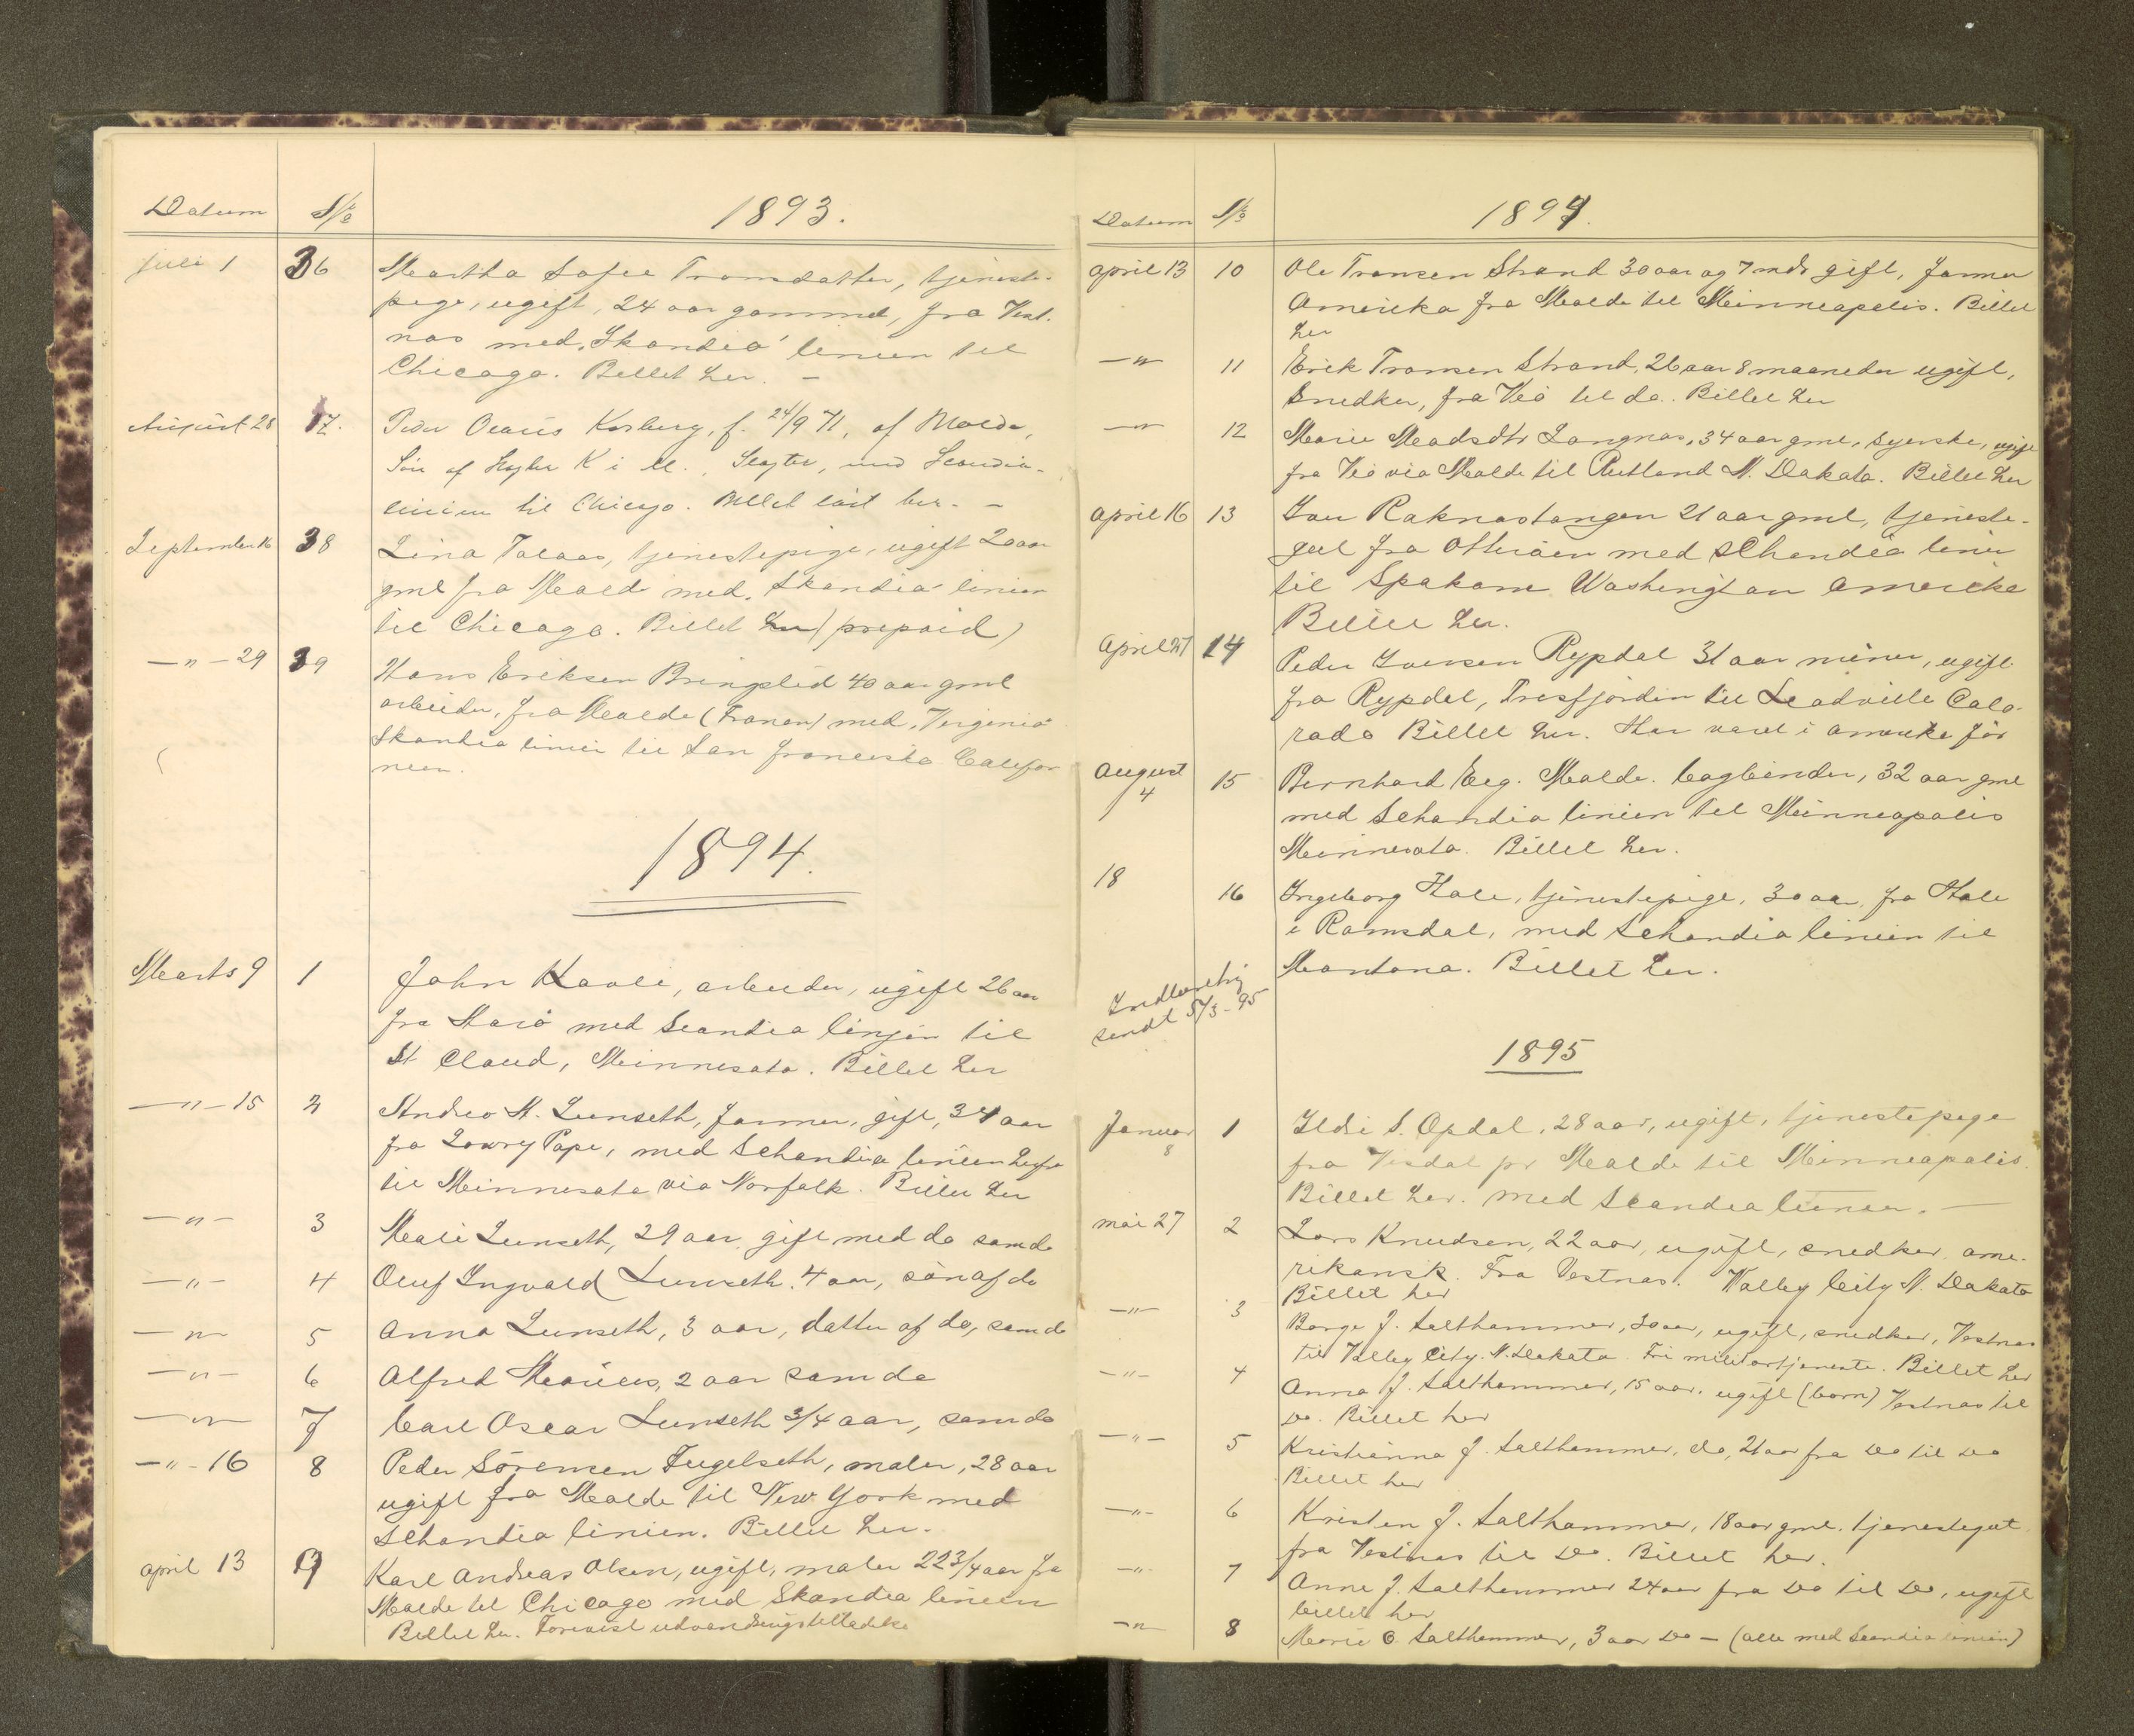 Datum No 1893.
Juli 1 36 Martha Sofie Tromsdatter, tjeneste-
pige, ugift, 24 aar gammel, fra Vest-
nas med "Skandia" linien til
Chicago. Billet her. -
August 28 17. Peder Olaus Korberg, f. 24/9 71, af Molde,
Søn af K i M., med Scandia-
linien til Chicago. Billet løst her. -
September 16 38 Lina Talaas, tjenestepige, ugift 20 aar
gml fra Molde med "Skandia" linien
til Chicago. Billet her (prepaid)
-"- 29 39 Hans Eriksen Bringslid 40 aar gml
arbeider, fra Molde (Franen) med "Virginia"
Skandia linien til San Francisko Califor
nien.
1894.
Marts 9 1 John Kavli, arbeider, ugift 26 aar
fra med Scandia linjen til
St Claud, Minnesota. Billet her
-"- 15 2 Andreo M. Lunseth, farmer, gift, 34 aar
fra Lowry Pope, med Schandia linien
til Minnesota via Norfolk. Billet her
-"- 3 Mali Lunseth, 29 aar gift med do som do
-"- 4 Oluf Ingvald Lunseth. 4 aar, søn af do
-"- 5 Anna Lunseth, 3 aar, datter af do, som do
-"- 6 Alfred Marius, 2 aar som do
-"- 7 Carl Oscar Lunseth 3/4 aar, som do
-"- 16 8 Peder Sørensen Fugelseth, maler, 28 aar
ugift fra Molde til New York med
Schandia linien. Billet her.
april 13 9 Karl Andreas Olsen, ugift, maler 22 3/4 aar fra
Molde til Chicago med Skandia linien
Billet her. Forevist udvandringstilladelse
Datum No 1894.
april 13 10 Ole Tronsen Strand 30 aar og 7 mdr gift, farmer
Amerika fra Molde til Minneapolis. Billet
her
-"- 11 Erik Tronsen Strand, 26 aar 8 maaneder ugift,
Snedker, fra Veø til do. Billet her
-"- 12 Marie Madsdtr Langnas, 34 aar gml, syerske, ugift
fra Veø via Molde til Rutland N. Dakota. Billet her
april 16 13 Iver Raknastangen 21 aar gml, tjeneste-
gut fra Otterøen med schandia linien
til Spokane Washington Amerika
Billet her.
April 27 14 Peder Iversen Rypdal 31 aar miner, ugift
fra Rypdal, Tresfjorden til Leadville Colo-
rado Billet her. Har varet i Amerika før
August
4 15 Bernhard Eeg. Molde. bogbinder, 32 aar gml
med Schandia linien til Minneapolis
Minnesota. Billet her.
18 16 Ingeborg Hole, tjenestepige, 30 aar, fra Hole
i Romsdal, med Schandia linien til
Montana. Billet her.
Indberetning
sendt 5/3-95
1895
Januar
8 1 Ildri S. Opdal, 28 aar, ugift, tjenestepige
fra Visdal pr Molde til Minneapolis.
Billet her. med Scandia linien. -
mai 27 2 Lars Knudsen, 22 aar, ugift, snedker, ame-
rikansk. Fra Vestnas. Walley City N. Dakota
Billet her
-"- 3 Børge J. Salthammer, 30 aar, ugift, snedker, Vestnas
til Valley City. N. Dakota. Fri militærtjeneste. Billet her
-"- 4 Anna J. Salthammer, 15 aar. ugift (barn) Vestnas til
Do. Billet her
-"- 5 Kristianna J. Salthammer, do, 21 aar fra Do til Do
Billet her
-"- 6 Kristen J. Salthammer, 18 aar gml. tjenestegut
fra Vestnas til Do. Billet her.
-"- 7 Anne J. Salthammer 24 aar fra Do til Do, ugift
billet her
-"- 8 Marie O. Salthammer, 3 aar Do - (alle med Scandia linien)